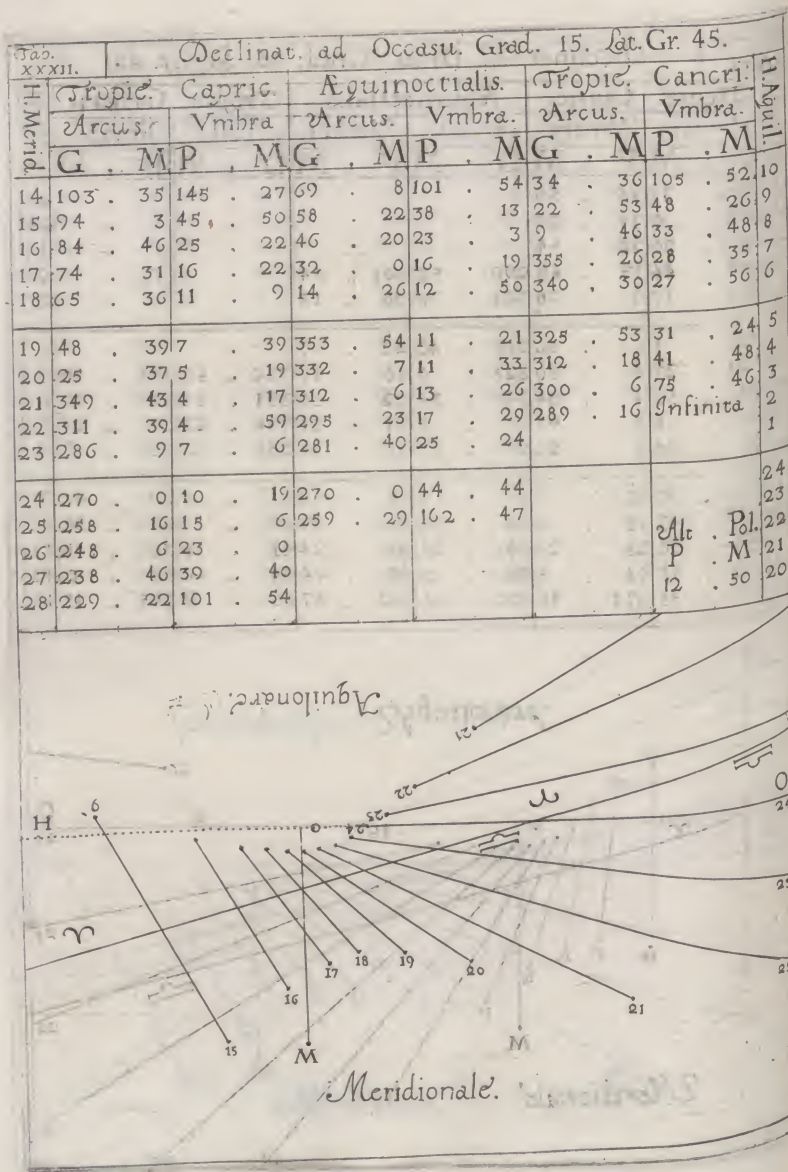 Tab. XXXII. Declinat. ad Occasu. Grad. 15. Lat. Gr. 45.
H. Merid. Tropic. Capric. Æquinoctialis. Tropic. Cancri. H. Aquil.
Arcus. Vmbra Arcus. Vmbra. Arcus. Vmbra.
G . M P . M G . M P . M G . M P . M
14 103 . 35 145 . 27 69 . 8 101 . 54 34 . 36 105 . 52 10
15 94 . 3 45 . 50 58 . 22 38 . 13 22 . 53 48 . 26 9
16 84 . 46 25 . 22 46 . 20 23 . 3 9 . 46 33 . 48 8
17 74 . 31 16 . 22 32 . 0 16 . 19 355 . 26 28 . 35 7
18 65 . 36 11 . 9 14 . 26 12 . 50 340 . 30 27 . 56 6
19 48 . 39 7 . 39 353 . 54 11 . 21 325 . 53 31 . 24 5
20 25 . 37 5 . 19 332 . 7 11 . 33 312 . 18 41 . 48 4
21 349 . 43 4 . 17 312 . 6 13 . 26 300 . 6 75 . 46 3
22 311 . 39 4 . 59 295 . 23 17 . 29 289 . 16 Infinita 2
23 286 . 9 7 . 6 281 . 40 25 . 24 1
24 270 . 0 10 . 19 270 . 0 44 . 44 24
25 258 . 16 15 . 6 259 . 29 162 . 47 23
26 248 . 6 23 . 0 Alt . Pol. 22
27 238 . 46 39 . 40 P . M 21
28 229 . 22 101 . 54 12 . 50 20
Aquilonare.
21
22
23
♈
♎
H 9 O 24 O
24
♎
23
♈
15 16 17 18 19 20 21
M
Meridionale.